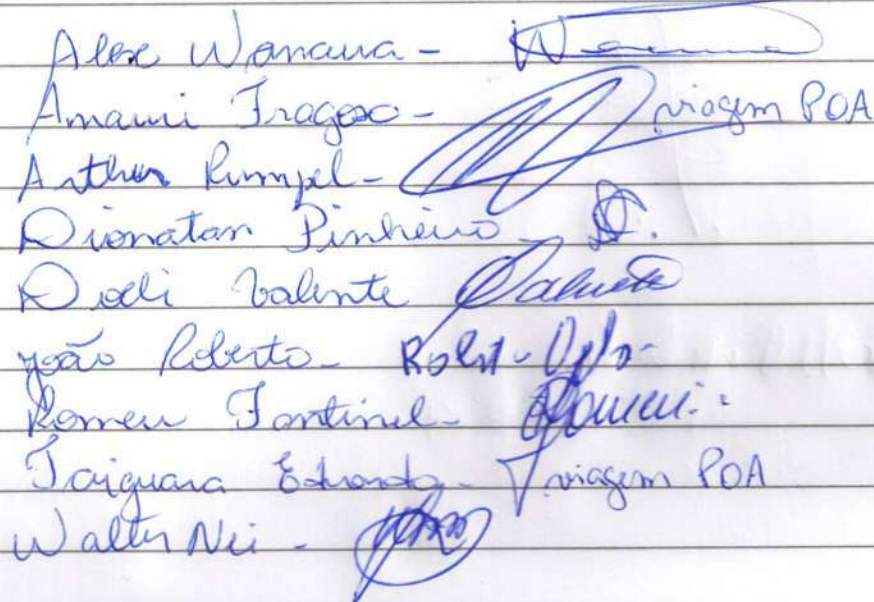 Alex Wanaua -
Amauri Fragoso - viagem POA
Arthur Rumpel -
Dionatan Pinheiro - D.
Dodi Valente Valente
João Roberto -
Romeu Fontinel - Romeu.
Taiguara Eduardo - viagem POA
Walter Nei -